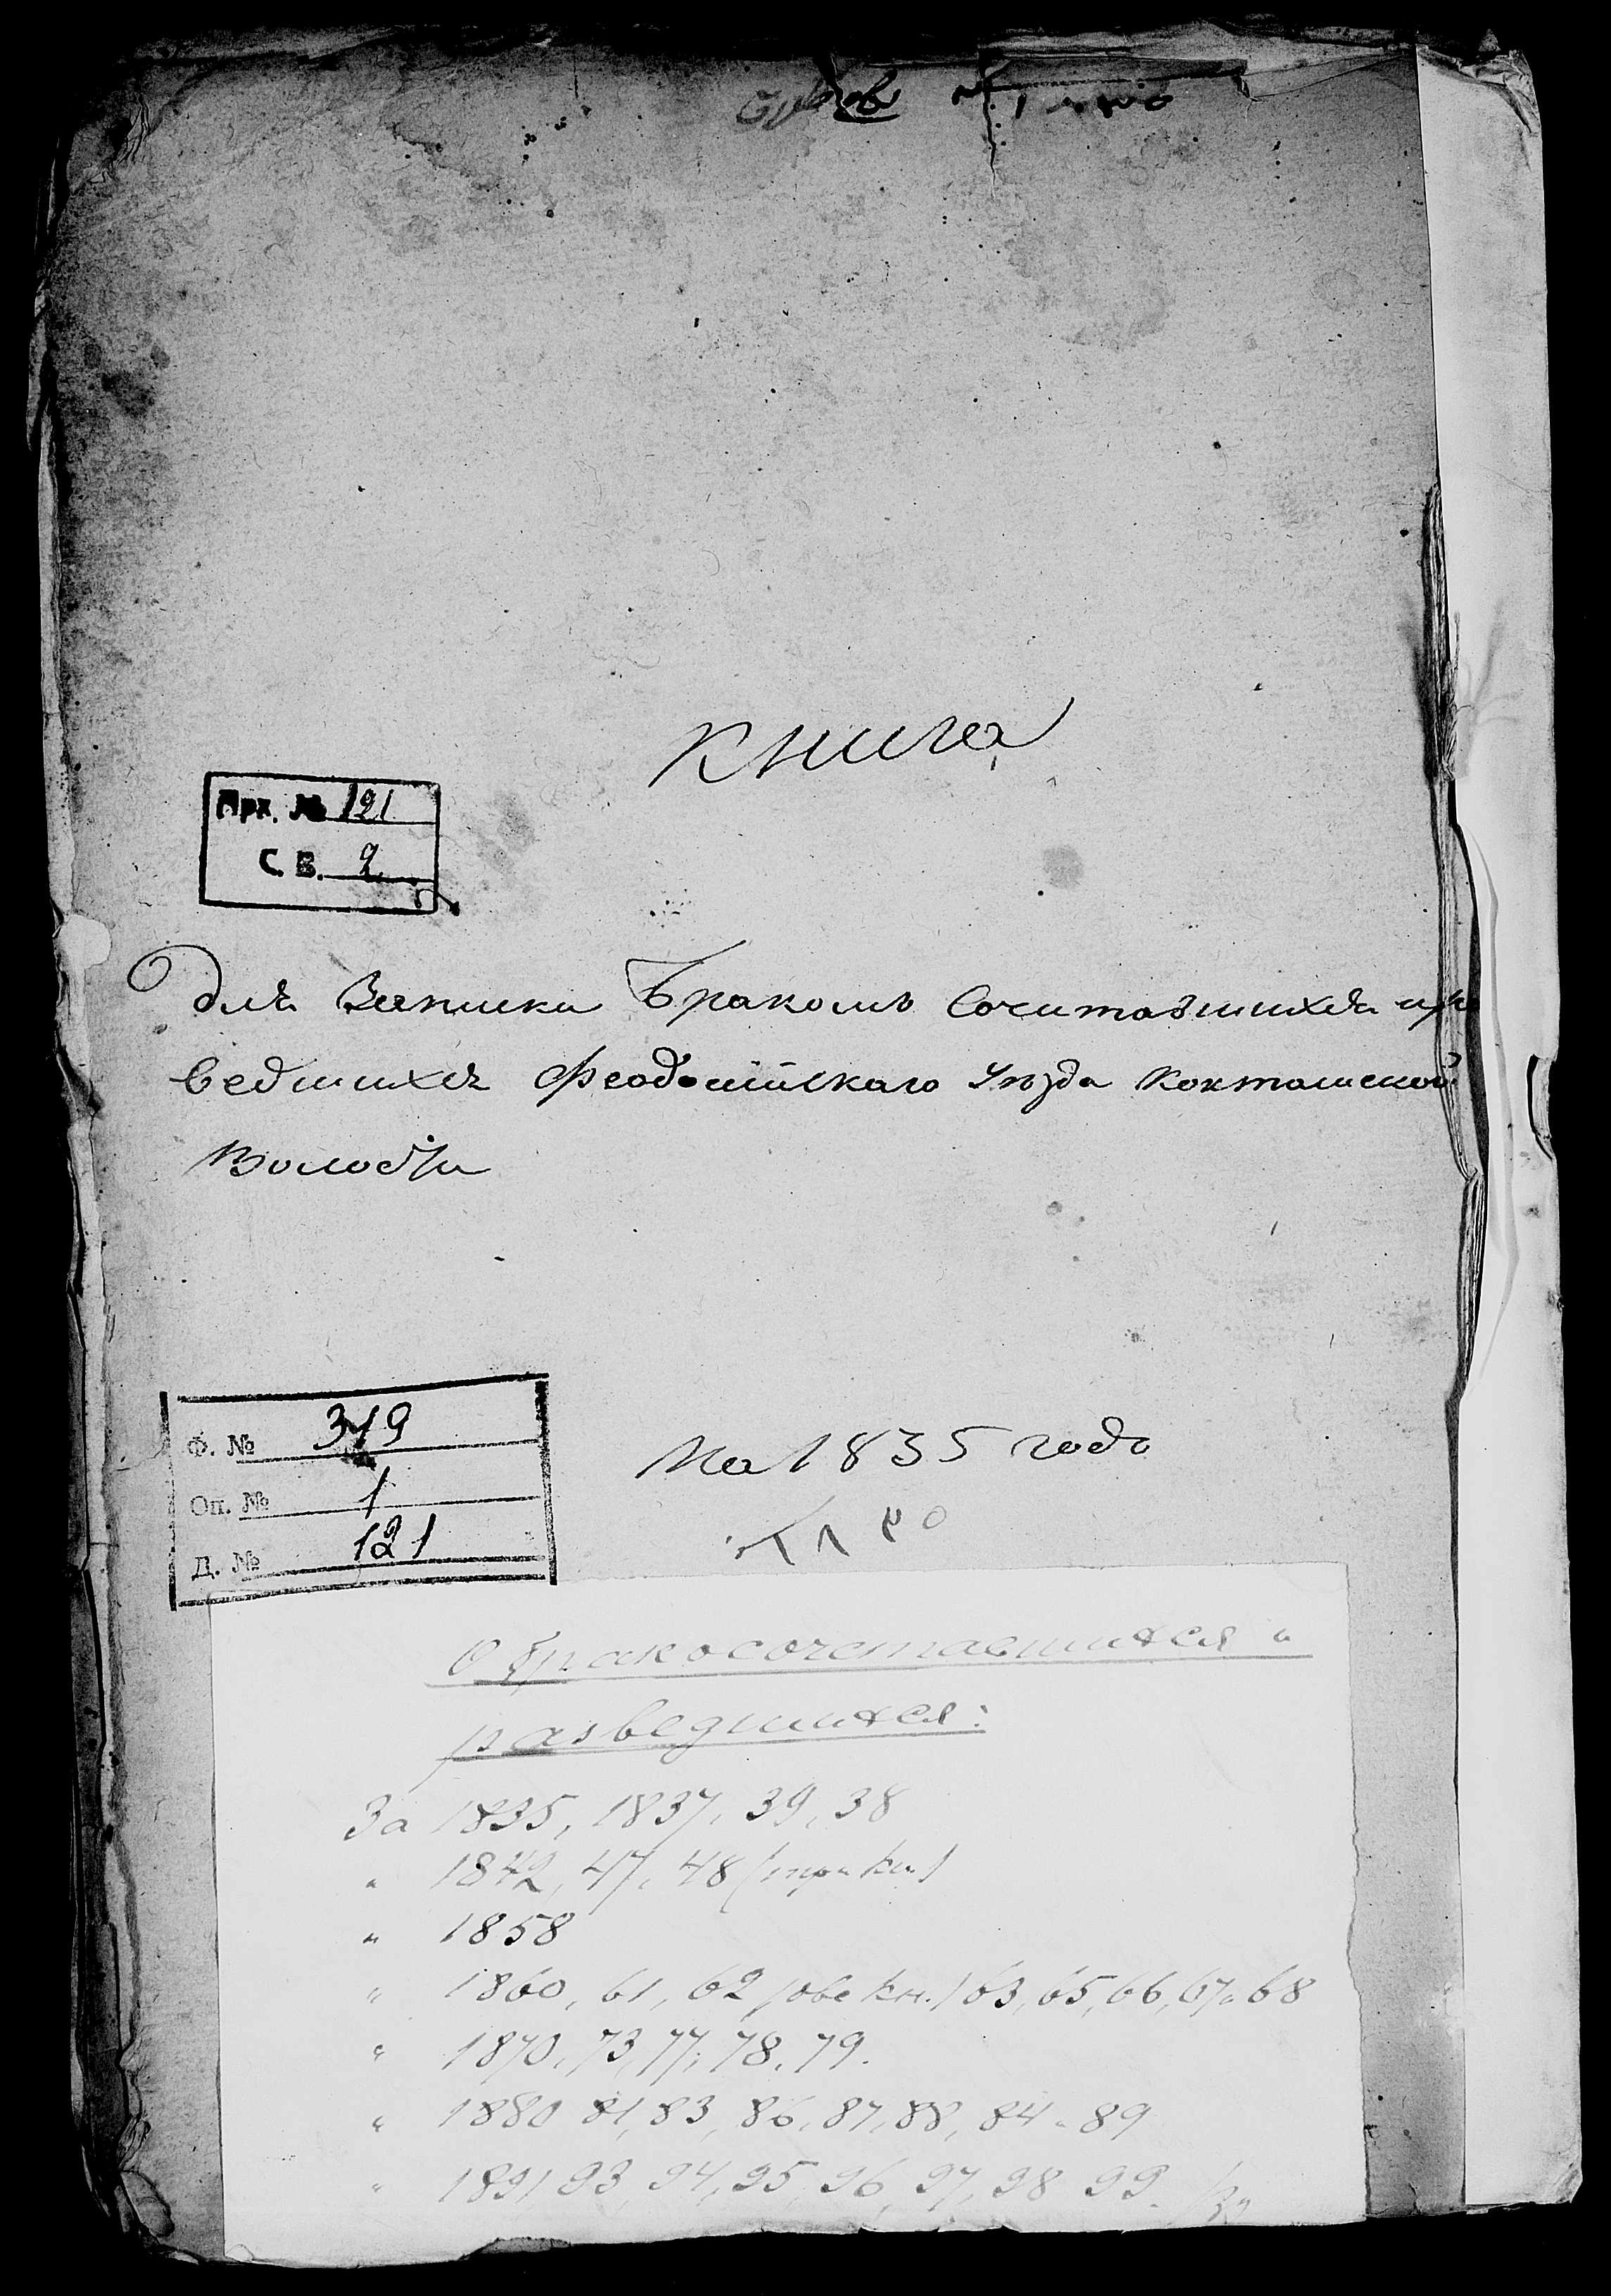 Книга
Арх. № 121
С. В. 2
для Записки Бракомъ Сочитавшихся и ра
ведшихся Феодосійскаго Уѣзда Кокташской
Волости
Ф. № 319
Оп. № 1
Д. № 121
На 1835 годъ
О бракосочетавшихся и
разведшихся:
За 1835, 1837, 39, 38
" 1842, 47, 48 (три кн.)
" 1858
" 1860, 61, 62 (обе кн.) 63, 65, 66, 67, 68
" 1870, 73, 77, 78, 79.
" 1880 81, 83, 86, 87, 88, 84 - 89
" 1891 93, 94, 95 96, 97, 98 99.